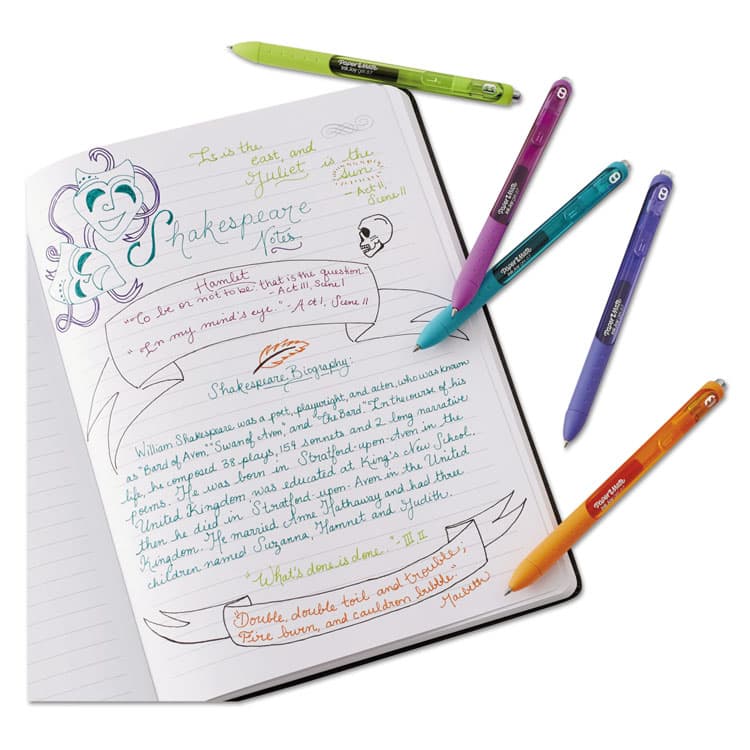 It is the
east, and
Juliet is the
sun
- Act II,
Scene II
Shakespeare
Notes
Hamlet
"To be or not to be: that is the question."
- Act III, Scene I
"In my mind's eye." - Act I, Scene II
Shakespeare Biography:
William Shakespeare was a poet, playwright, and actor, who was known
as "Bard of Avon," "Swan of Avon," and "The Bard." In the course of his
life, he composed 38 plays, 154 sonnets and 2 long narrative
poems. He was born in Stratford-upon-Avon in the
United Kingdom, was educated at King's New School,
then he died in Stratford-upon-Avon in the United
Kingdom. He married Anne Hathaway and had three
children named Suzanna, Hamnet and Judith.
"What's done is done." - III, II
"Double, double toil and trouble;
Fire burn, and cauldron bubble."
Macbeth
Paper Mate
InkJoy gel 0.7
Paper Mate
InkJoy gel 0.7
Paper Mate
InkJoy gel 0.7
Paper Mate
InkJoy gel 0.7
Paper Mate
InkJoy gel 0.7